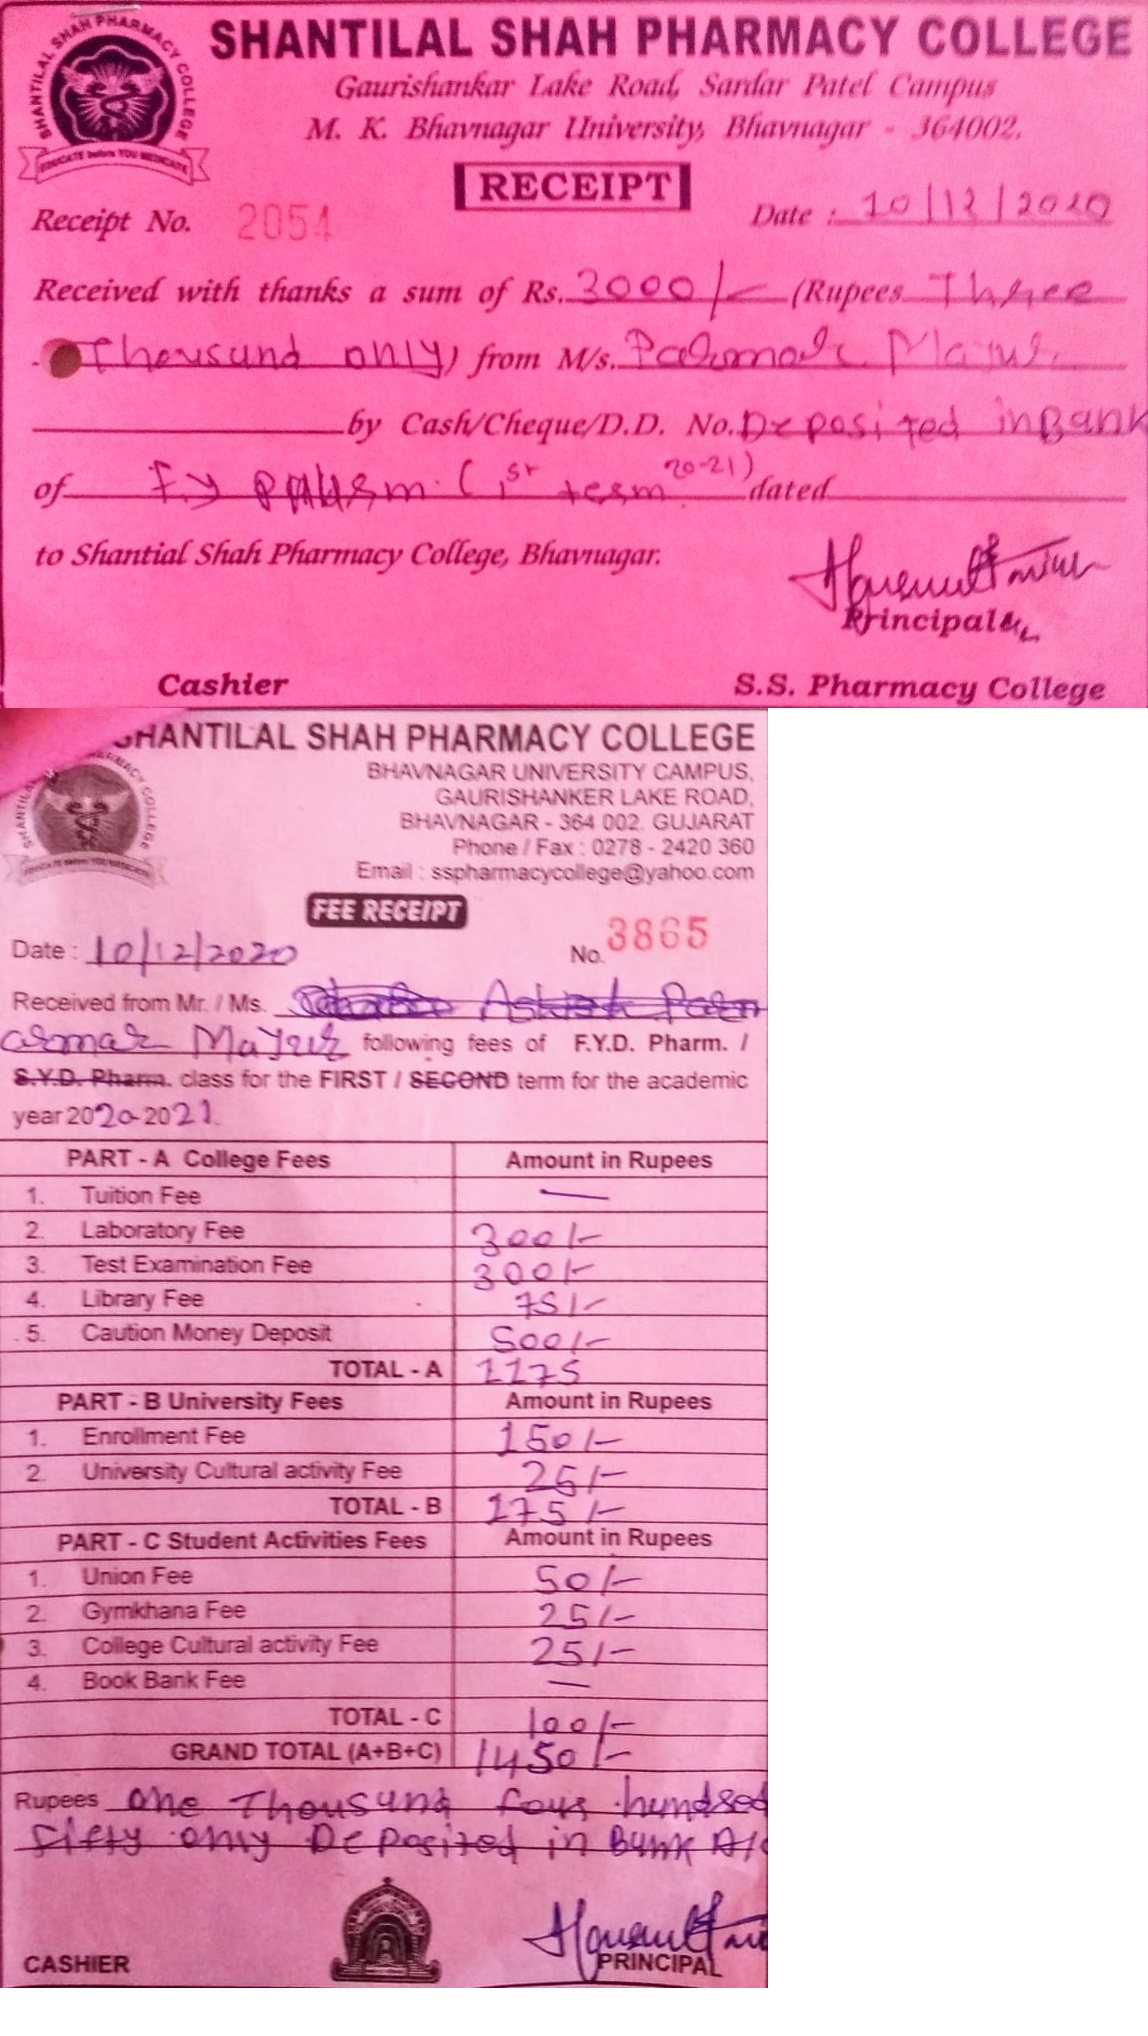 SHANTILAL SHAH PHARMACY COLLEGE
EDUCATE before YOU MEDICATE
SHANTILAL SHAH PHARMACY COLLEGE
Gaurishankar Lake Road, Sardar Patel Campus
M. K. Bhavnagar University, Bhavnagar - 364002.
RECEIPT
Receipt No. 2054 Date : 10/12/2020
Received with thanks a sum of Rs. 3000/- (Rupees Three
Thousand only) from M/s. Parmar Mayur
by Cash/Cheque/D.D. No. Deposited in Bank
of F.y pharm. (1st term 20-21) dated
to Shantial Shah Pharmacy College, Bhavnagar.
Principal
Cashier S.S. Pharmacy College
SHANTILAL SHAH PHARMACY COLLEGE
BHAVNAGAR UNIVERSITY CAMPUS,
GAURISHANKER LAKE ROAD,
BHAVNAGAR - 364 002. GUJARAT
Phone / Fax : 0278 - 2420 360
Email : sspharmacycollege@yahoo.com
FEE RECEIPT
Date : 10/12/2020 No. 3865
Received from Mr. / Ms. Ashish Parm
armar Mayur following fees of F.Y.D. Pharm. /
S.Y.D. Pharm. class for the FIRST / SECOND term for the academic
year 2020-2021.
PART - A College Fees Amount in Rupees
1. Tuition Fee —
2. Laboratory Fee 300/-
3. Test Examination Fee 300/-
4. Library Fee 75/-
5. Caution Money Deposit 500/-
TOTAL - A 1175
PART - B University Fees Amount in Rupees
1. Enrollment Fee 150/-
2. University Cultural activity Fee 25/-
TOTAL - B 175/-
PART - C Student Activities Fees Amount in Rupees
1. Union Fee 50/-
2. Gymkhana Fee 25/-
3. College Cultural activity Fee 25/-
4. Book Bank Fee —
TOTAL - C 100/-
GRAND TOTAL (A+B+C) 1450/-
Rupees One Thousand four hundred
fifty only Deposited in Bank A/c
CASHIER PRINCIPAL